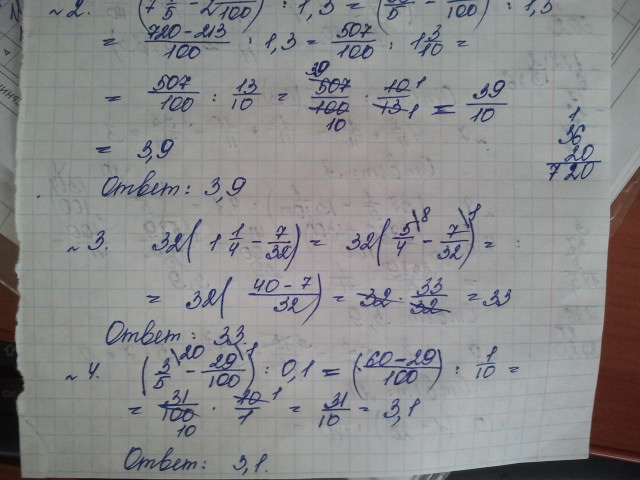 №2. (7 1/5 - 2 13/100) : 1,3 = (36/5 - 213/100) : 1,3
= (720-213)/100 : 1,3 = 507/100 : 1 3/10 =
= 507/100 : 13/10 = 507/100 · 10/13 = 39/10
39
10
1
1
= 3,9
1
36
20
720
Ответ: 3,9
№3. 32(1 1/4 - 7/32) = 32(5/4\8 - 7/32\1) =
= 32((40-7)/32) = 32 · 33/32 = 33
Ответ: 33.
№4. (3/5\20 - 29/100\1) : 0,1 = ((60-29)/100) : 1/10 =
= 31/100 · 10/1 = 31/10 = 3,1
10
1
Ответ: 3,1.